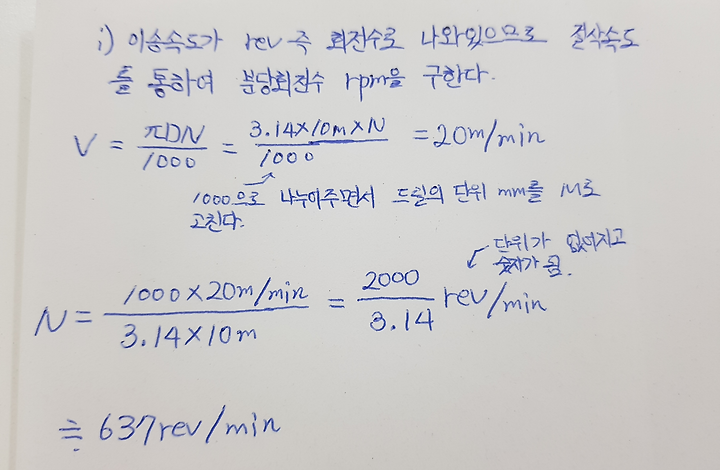 i) 이송속도가 rev 즉 회전수로 나와있으므로 절삭속도
를 통하여 분당회전수 rpm을 구한다.
V = πDN/1000 = 3.14×10m×N/1000 = 20m/min
1000으로 나누어주면서 드릴의 단위 mm를 M로
고친다.
단위가 없어지고
숫자가 됨.
N = 1000×20m/min / 3.14×10m = 2000/3.14 rev/min
≒ 637rev/min